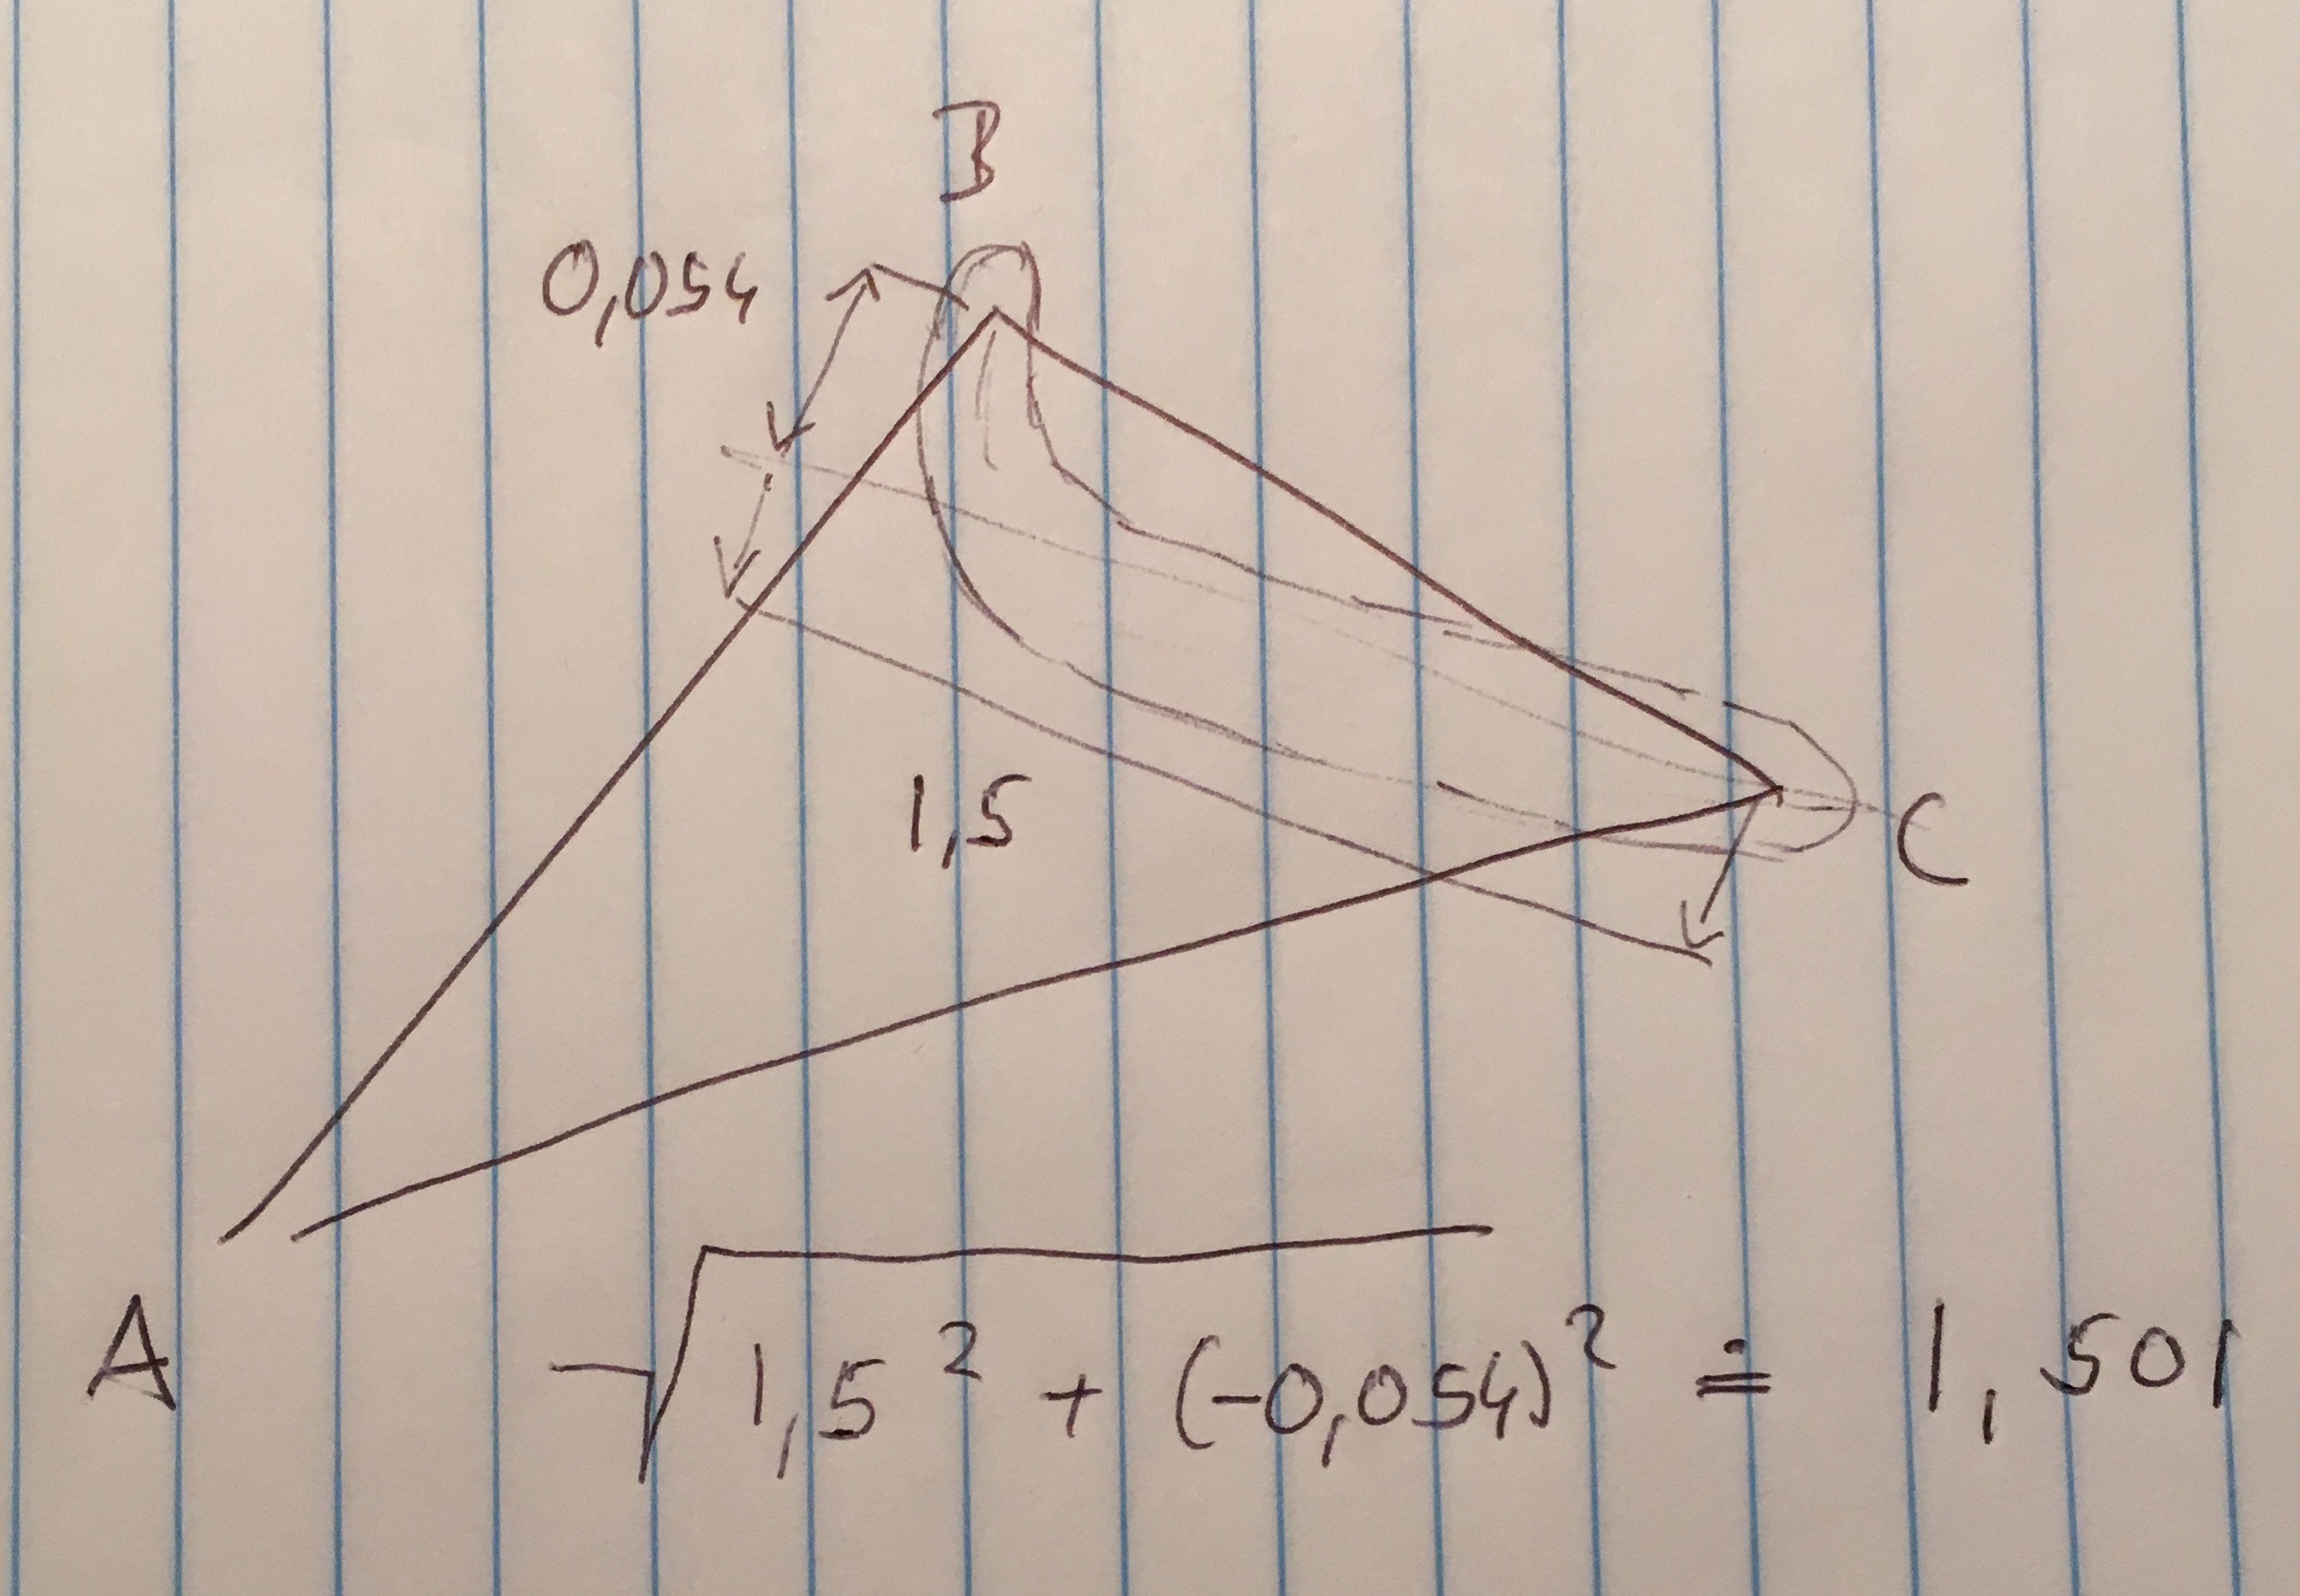 B
0,054
1,5
C
A
√1,5² + (-0,054)² ≐ 1,501